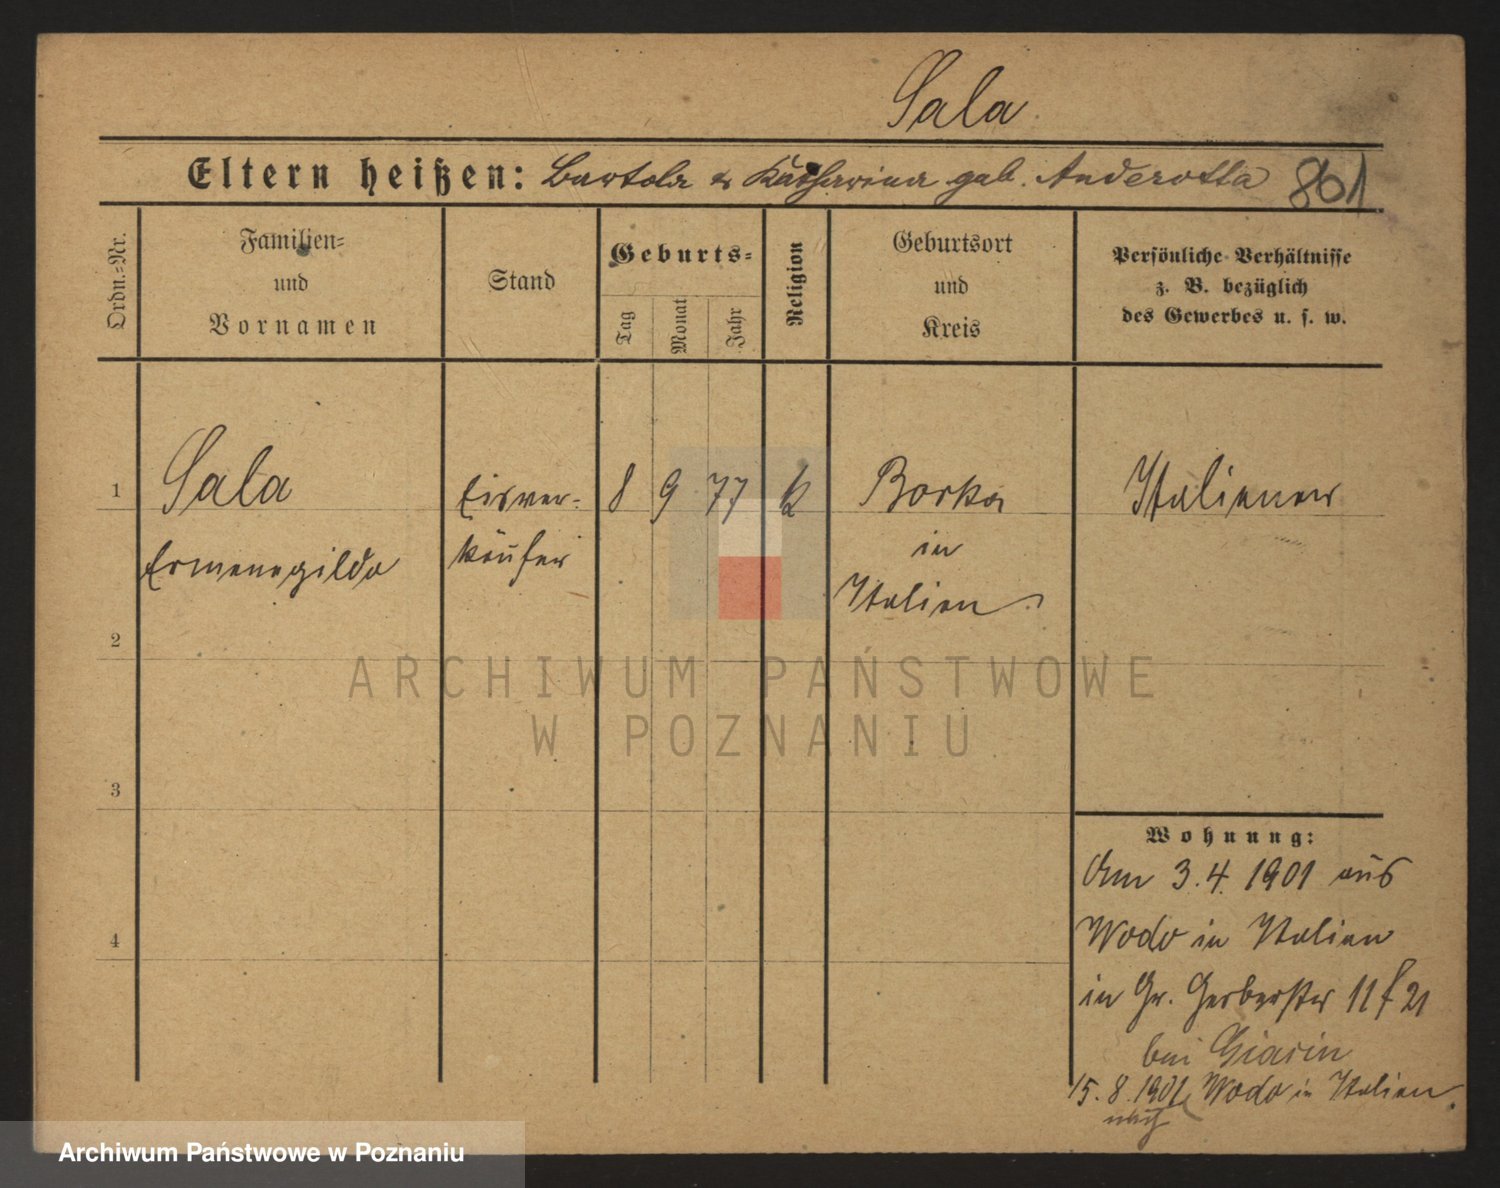 Sala
Eltern heißen: Bartola & Katharina geb. Anderotta 861
Ordn.=Nr.
Familien=
und
Vornamen
Stand
Geburts=
Tag
Monat
Jahr
Religion
Geburtsort
und
Kreis
Persönliche Verhältnisse
z. B. bezüglich
des Gewerbes u. s. w.
1
Sala
Ermenegildo
Eisver-
käufer
8 9 77 k
Borka
in
Italien.
Italiener
2
3
4
ARCHIWUM PAŃSTWOWE
W POZNANIU
Wohnung:
Am 3.4.1901 aus
Wodo in Italien
in Gr. Gerberstr 11 f 21
bei Giacin
15.8.1901 Wodo in Italien.
nach
Archiwum Państwowe w Poznaniu